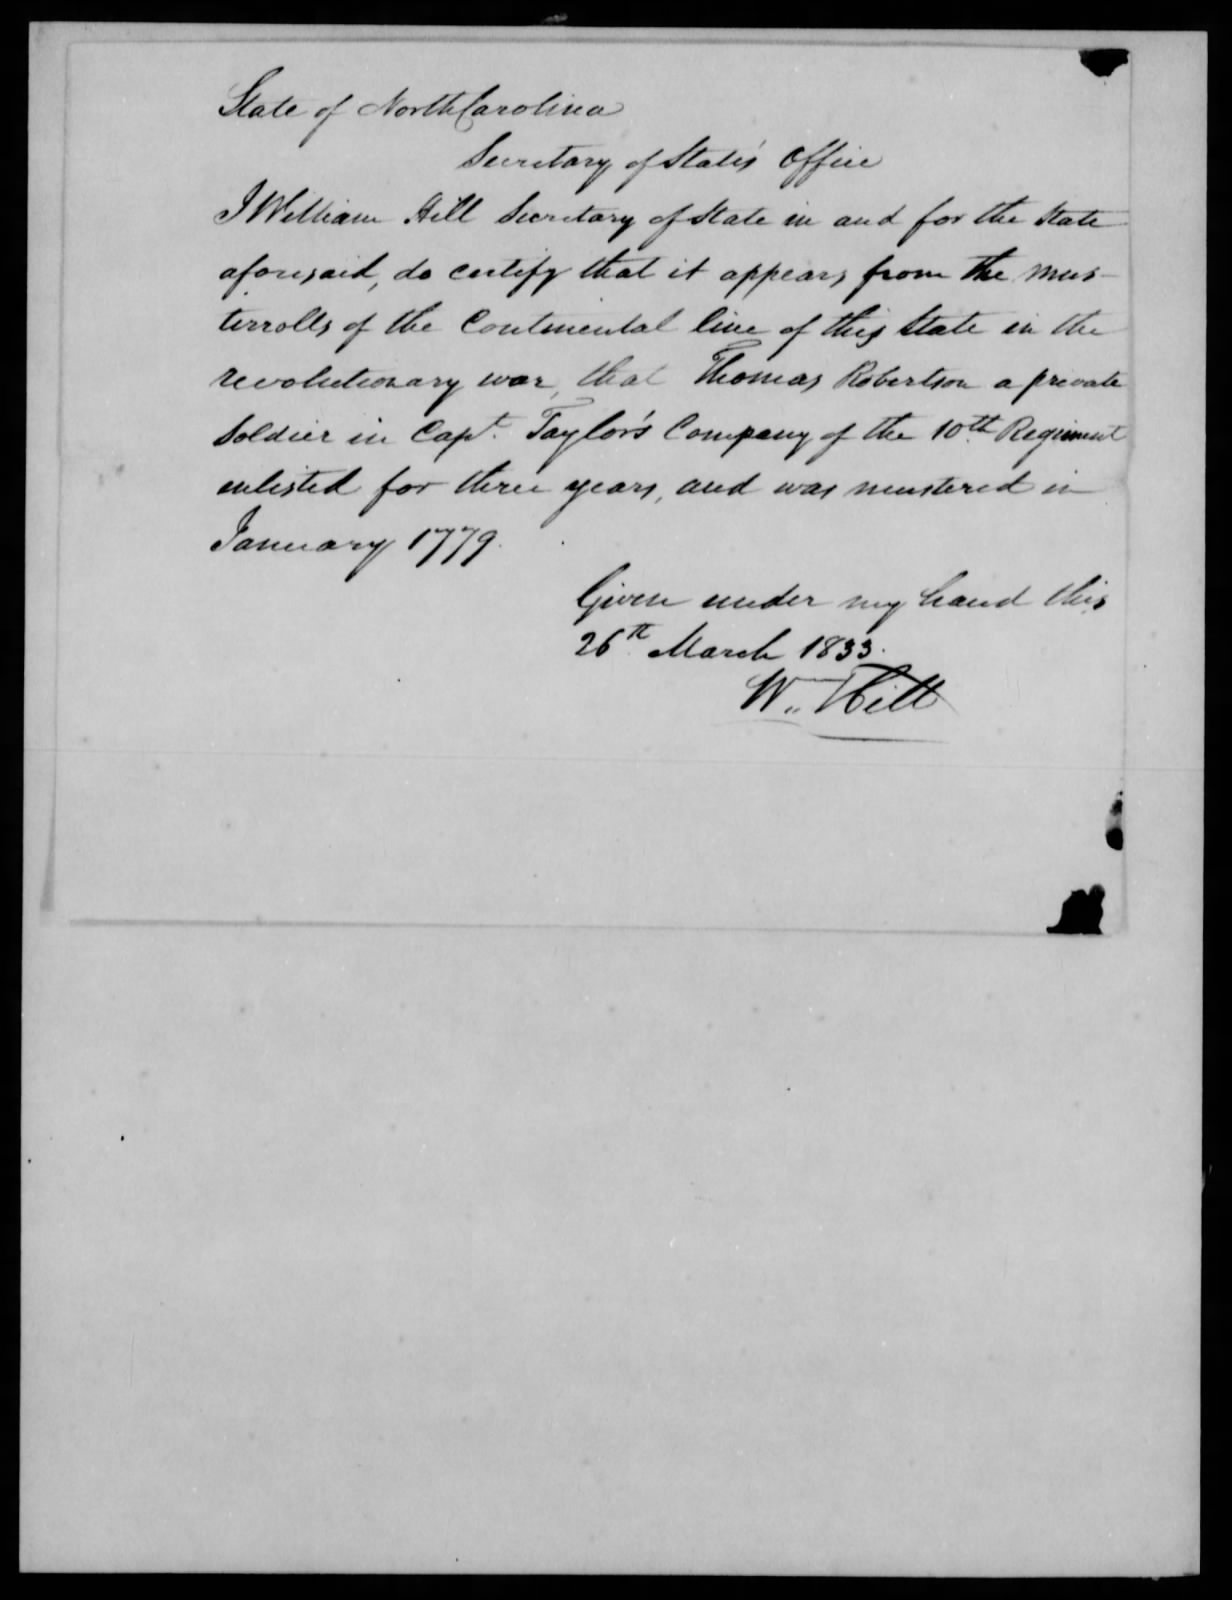 State of North Carolina
Secretary of State's Office
I William Hill Secretary of State in and for the State
aforesaid, do certify that it appears from the mus-
terrolls of the Continental line of this State in the
revolutionary war, that Thomas Robertson a private
Soldier in Capt. Taylor's Company of the 10th Regiment
enlisted for three years, and was mustered in
January 1779.
Given under my hand this
26th March 1833.
Wm. Hill